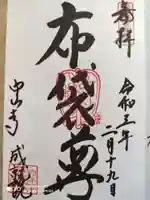 奉拝
令和三年
二月十九日
布袋尊
中山寺
成就院